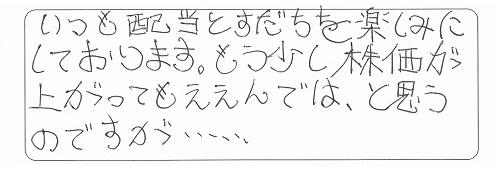 いつも配当とすだちを楽しみに
しております。もう少し株価が
上がってもええんでは、と思う
のですが……